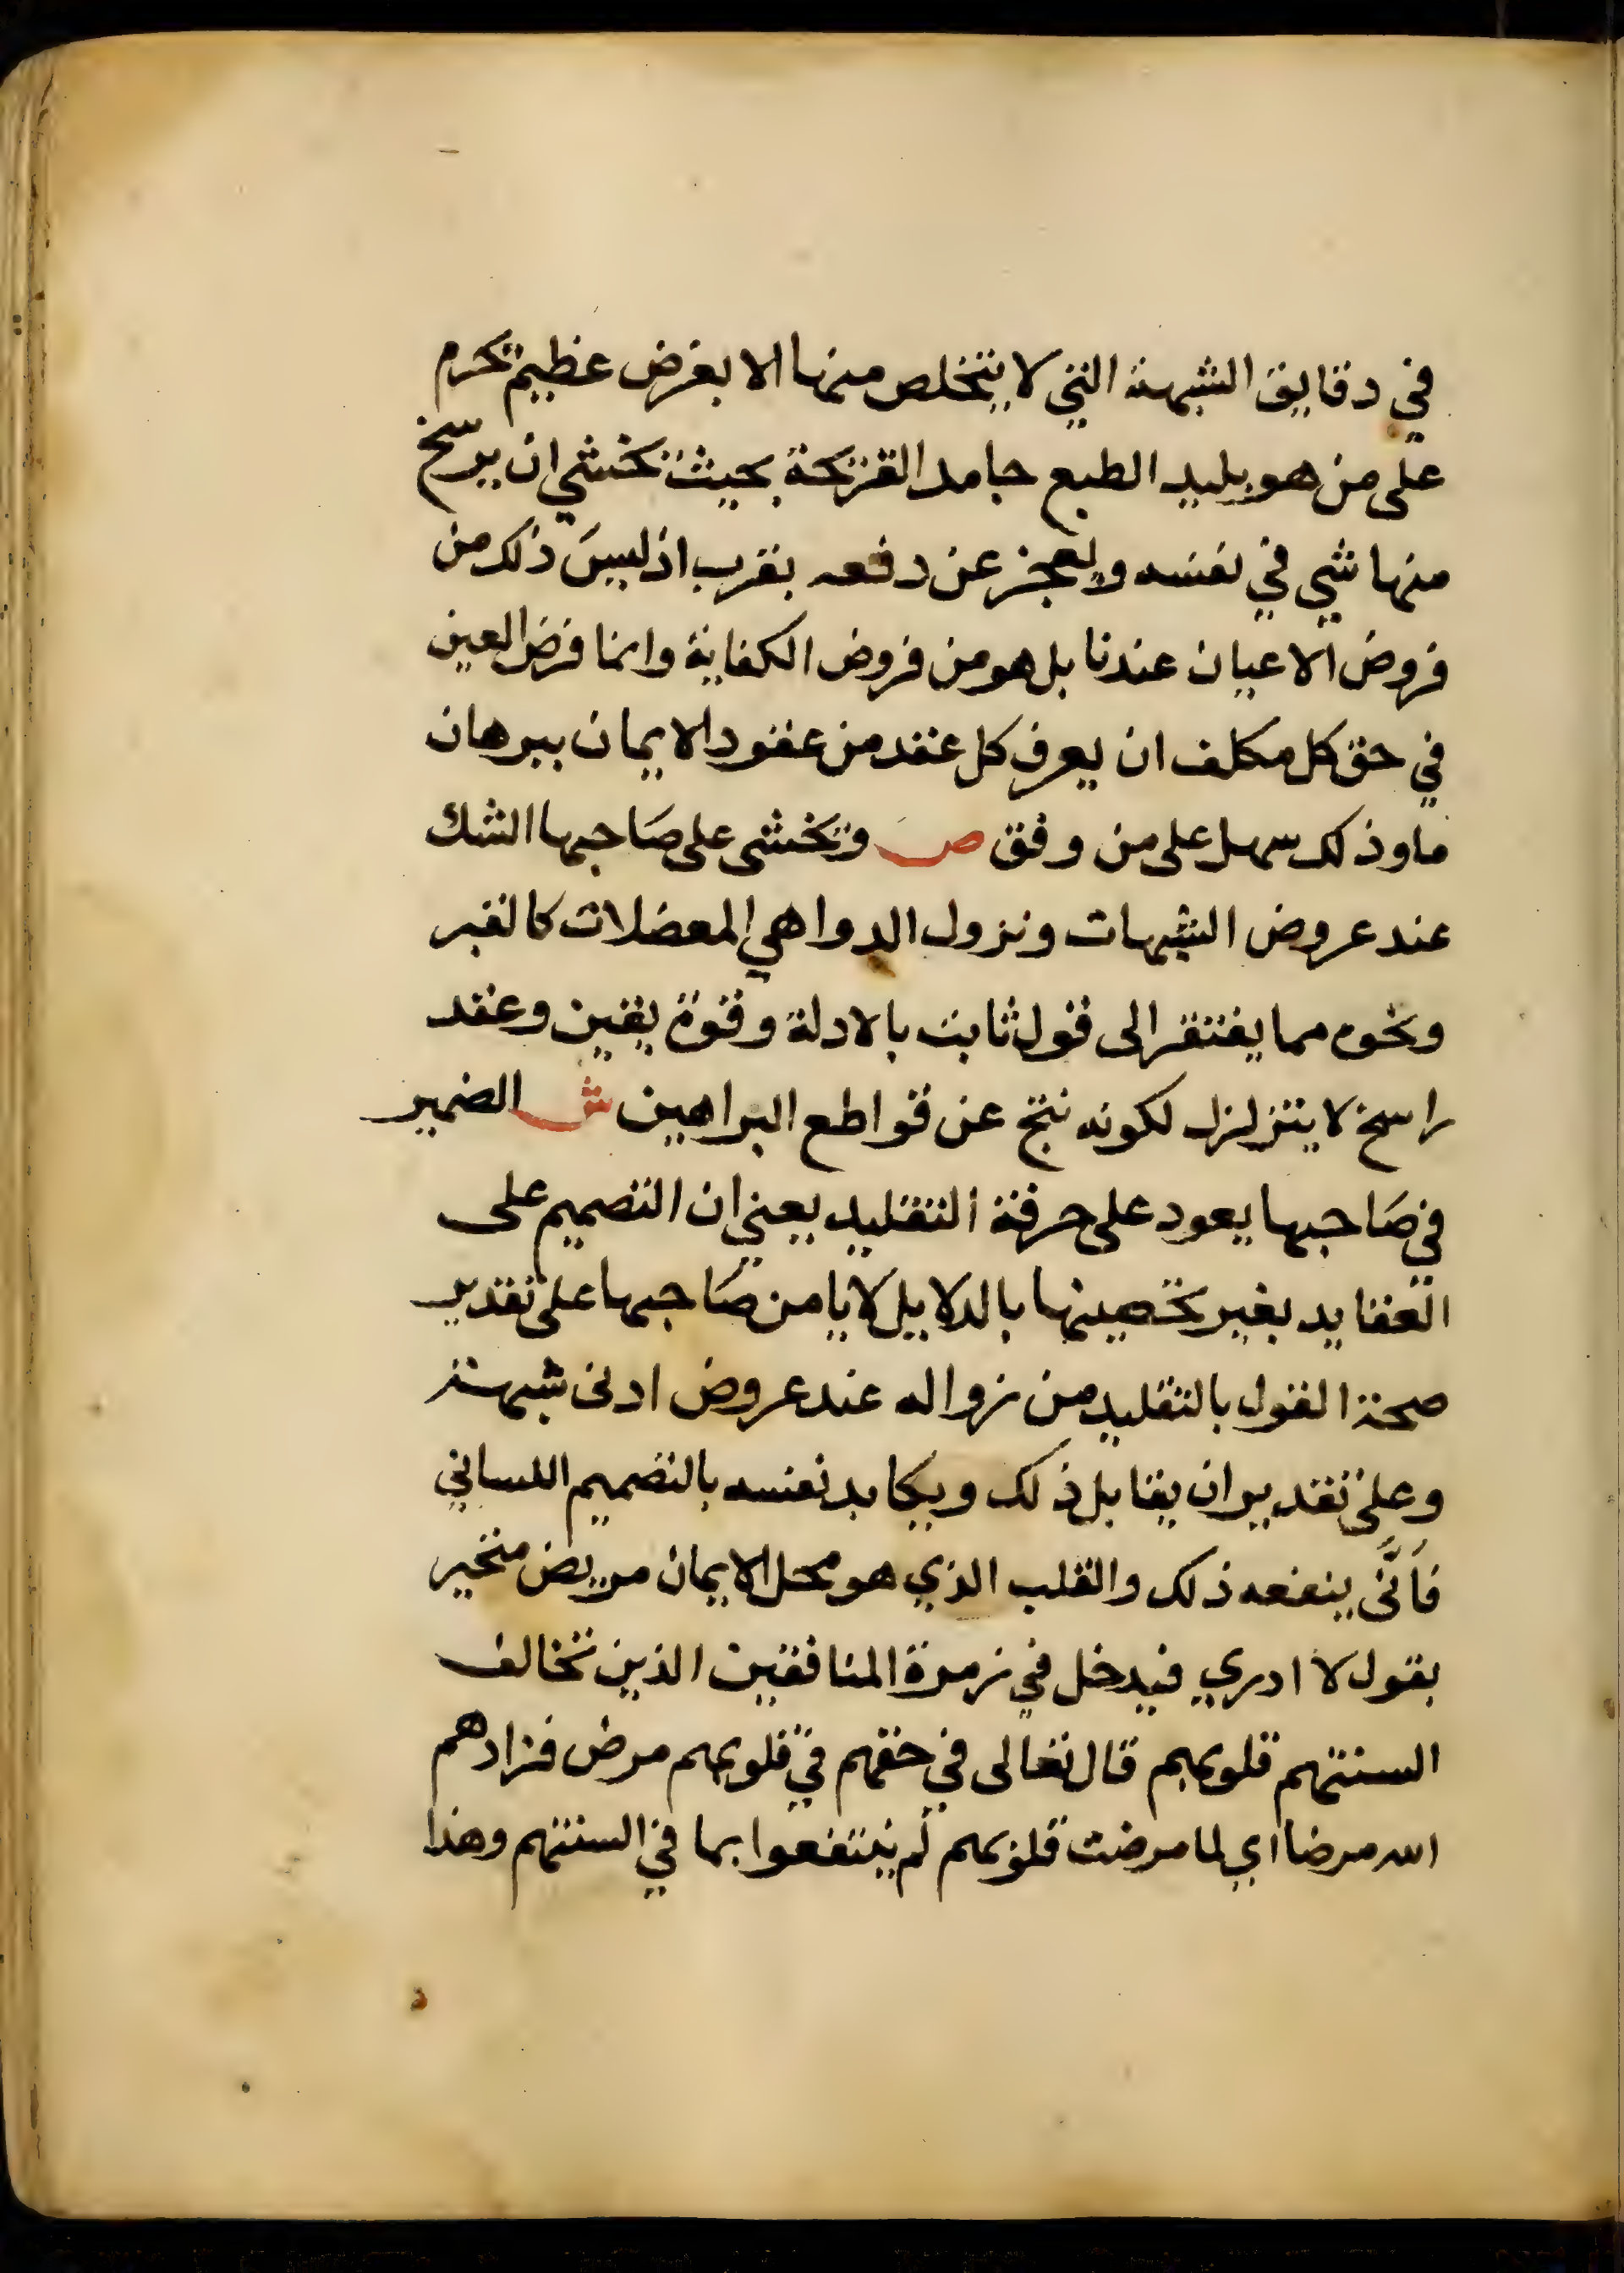 في دقايق الشبهة التي لا يتخلص منها الا بغرض عظيم تحرم
على من هو بليد الطبع جامد القريحة بحيث تخشي ان يرسخ
منها شي في نفسه ويعجز عن دفعه بقرب اذ ليس ذلك من
فروض الاعيان عندنا بل هو من فروض الكفاية وانما فرض العين
في حق كل مكلف ان يعرف كل عقد من عقود الايمان ببرهان
ما وذلك سهل على من وفق ص وتخشى على صاحبها الشك
عند عروض الشبهات ونزول الدواهي المعضلات كالقبر
ونحوه مما يفتقر الى قول ثابت بالادلة وقوة يقين وعقد
راسخ لا يتزلزل لكونه نتج عن قواطع البراهين ش الضمير
في صاحبها يعود على حرفة التقليد يعني ان التصميم على
العقايد بغير تحصينها بالدلايل لا يامن صاحبها على تقدير
صحة القول بالتقليد من زواله عند عروض ادنى شبهة
وعلى تقدير ان يقابل ذلك ويكابد نفسه بالتصميم اللساني
فأنَّى ينفعه ذلك والقلب الذي هو محل الايمان مريض متحير
بقول لا ادري فيدخل في زمرة المنافقين الذين تخالف
السنتهم قلوبهم قال تعالى في حقهم في قلوبهم مرض فزادهم
الله مرضا اي لما مرضت قلوبهم لم ينتفعوا بما في السنتهم وهذا